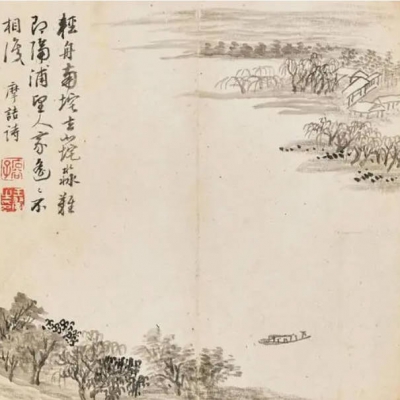 輕舟南垞去北垞淼難
即隔浦望人家遙〻不
相識
摩詰詩